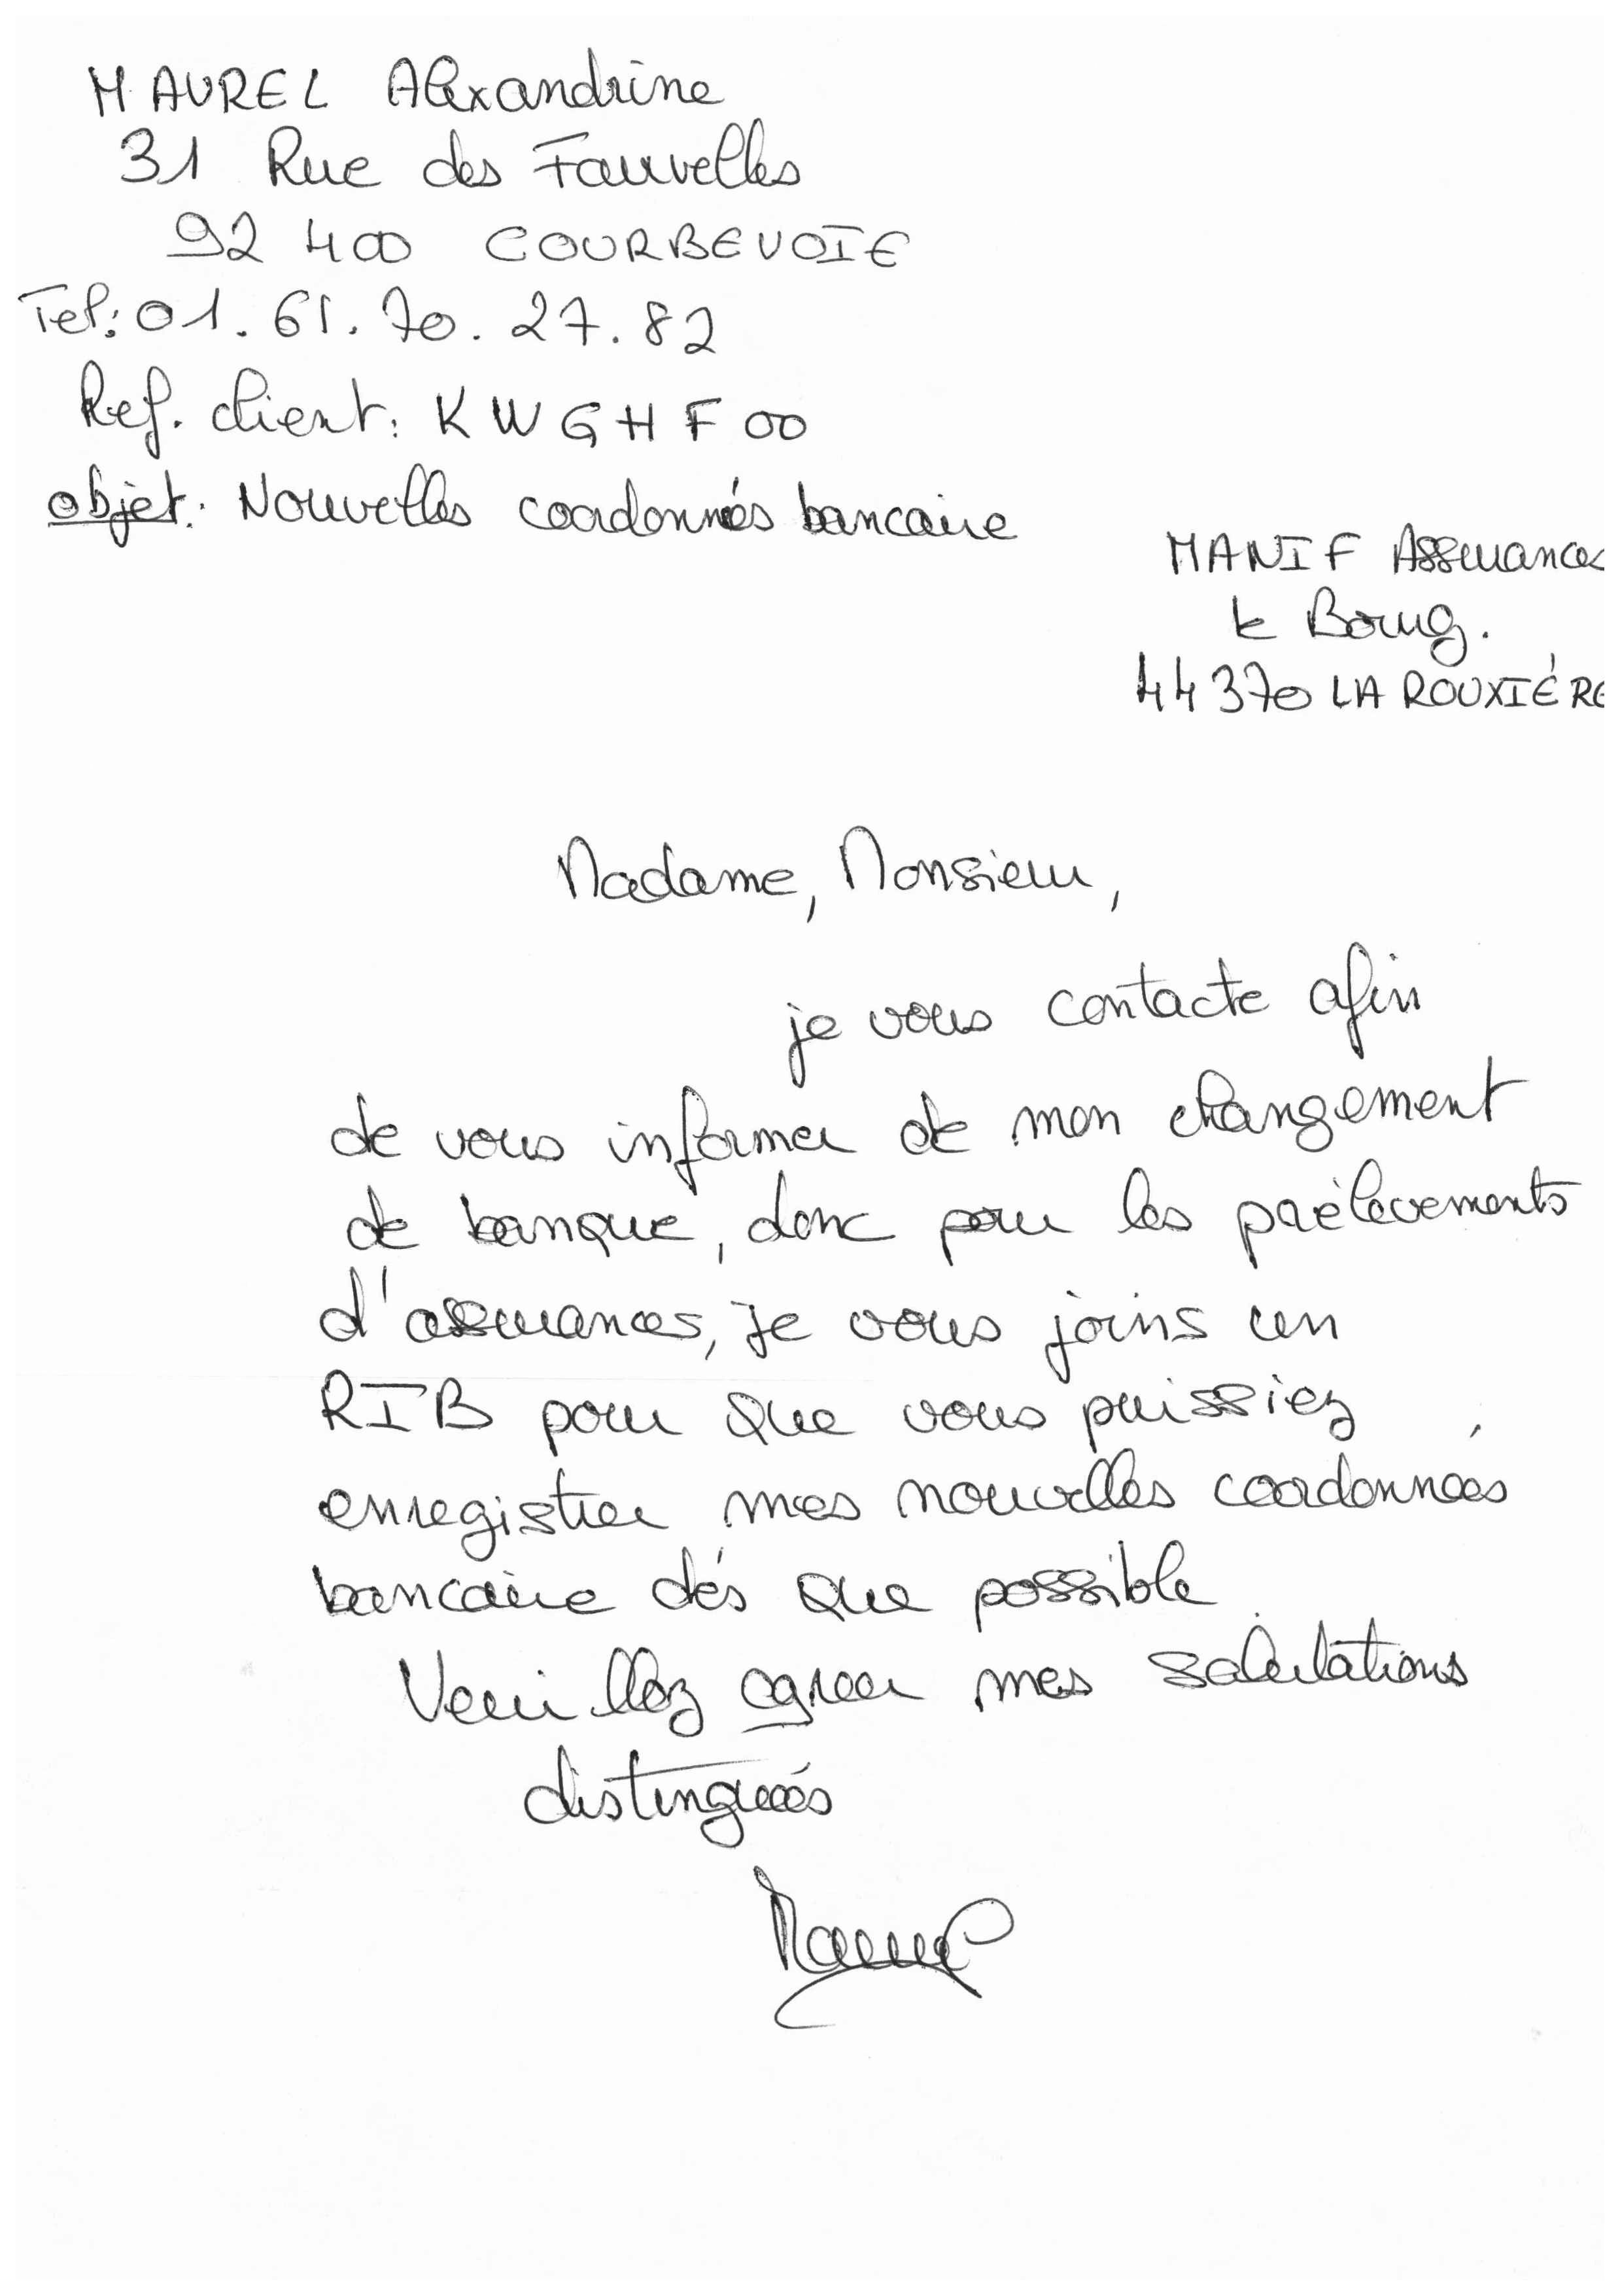 MAUREL Alexandrine
31 Rue des Fauvelles
92 400 COURBEVOIE
Tel: 01.61.70.27.82
Ref. client: KWGHF00
objet: Nouvelles coordonnés bancaire
MANIF Assurances
Le Bourg.
44370 LA ROUXIÉRE
Madame, Monsieur,
je vous contacte afin
de vous informer de mon changement
de banque, donc pour les prélevements
d'assurances, je vous joins un
RIB pour que vous puissiez
enregistrer mes nouvelles coordonnées
bancaire dés que possible
Veuillez agreer mes salutations
distinguées
Maurel